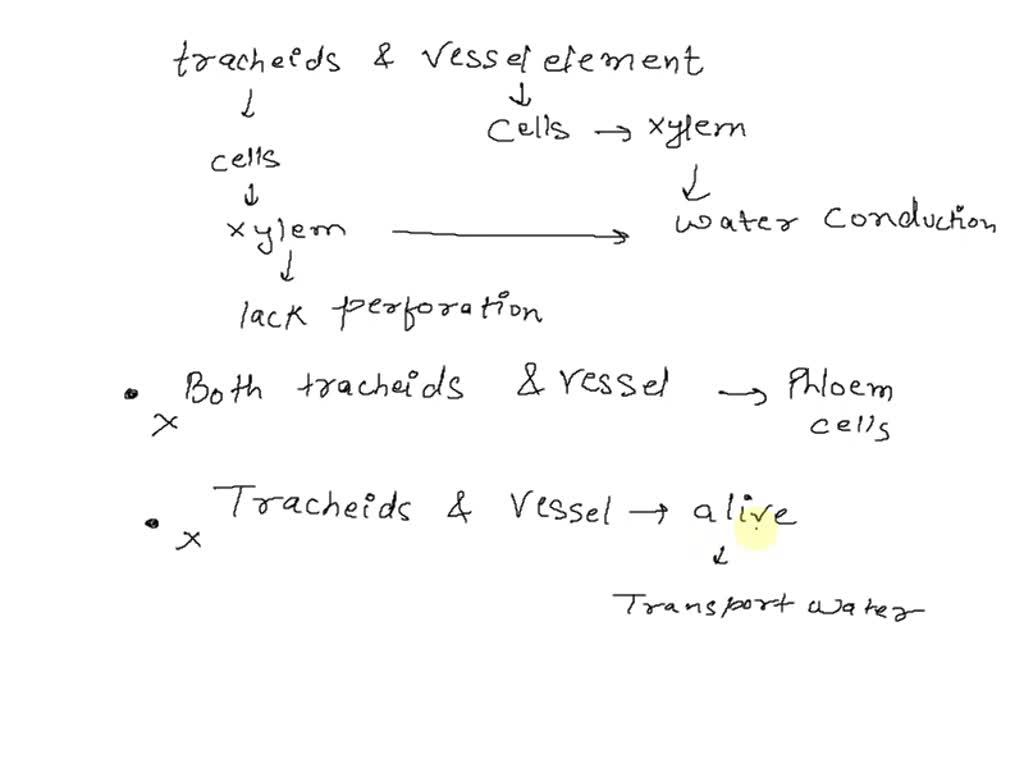 tracheids & vessel element
↓ ↓
cells → xylem
cells
↓ ↓
xylem → water conduction
↓
lack perforation
• Both tracheids & vessel → Phloem
x cells
• Tracheids & vessel → alive
x ↓
Transport water